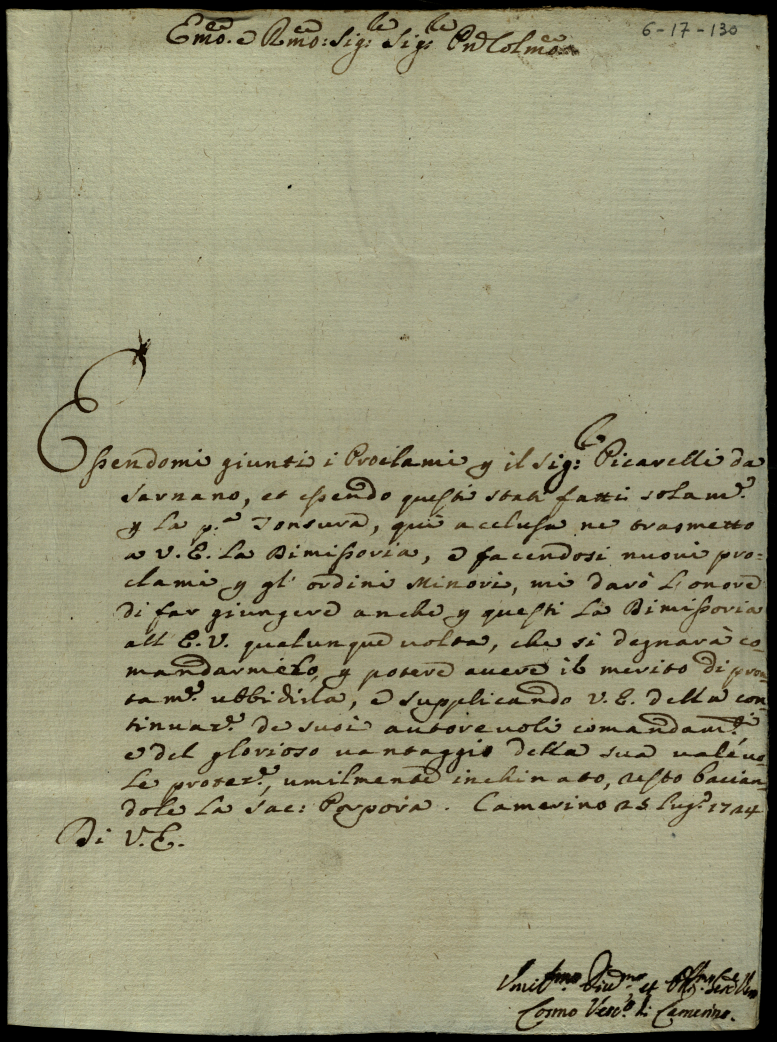 6-17-130
Emo. e Rmo: Sig:re Sig:re Pne Colmo
Essendomi giunti i Proclami p il Sig:re Picarelli da
Sarnano, et essendo questi stati fatti solam.te
p la p.ma Tonsura, qui acclusa ne trasmetto
a V. E. la Dimissoria, e facendosi nuovi pro=
clami p gl' ordini Minori, mi darò l'onore
di far giungere anche p questi la Dimissoria
all E. V. qualunque volta, che si degnarà co-
mandarmelo, p potere avere il merito di pron-
tam.te ubbidirla, e supplicando V. E. della con-
tinuaz.e de suoi autorevoli comandam.ti
e del glorioso vantaggio della sua valevo-
le protez.e, umilmente inchinato, resto bacian-
dole la Sac: Porpora. Camerino 25 Lug.o 1724
Di V. E.
Umil.mo Div.mo et Obl.mo Ser.e
Cosmo Vesc.o di Camerino.